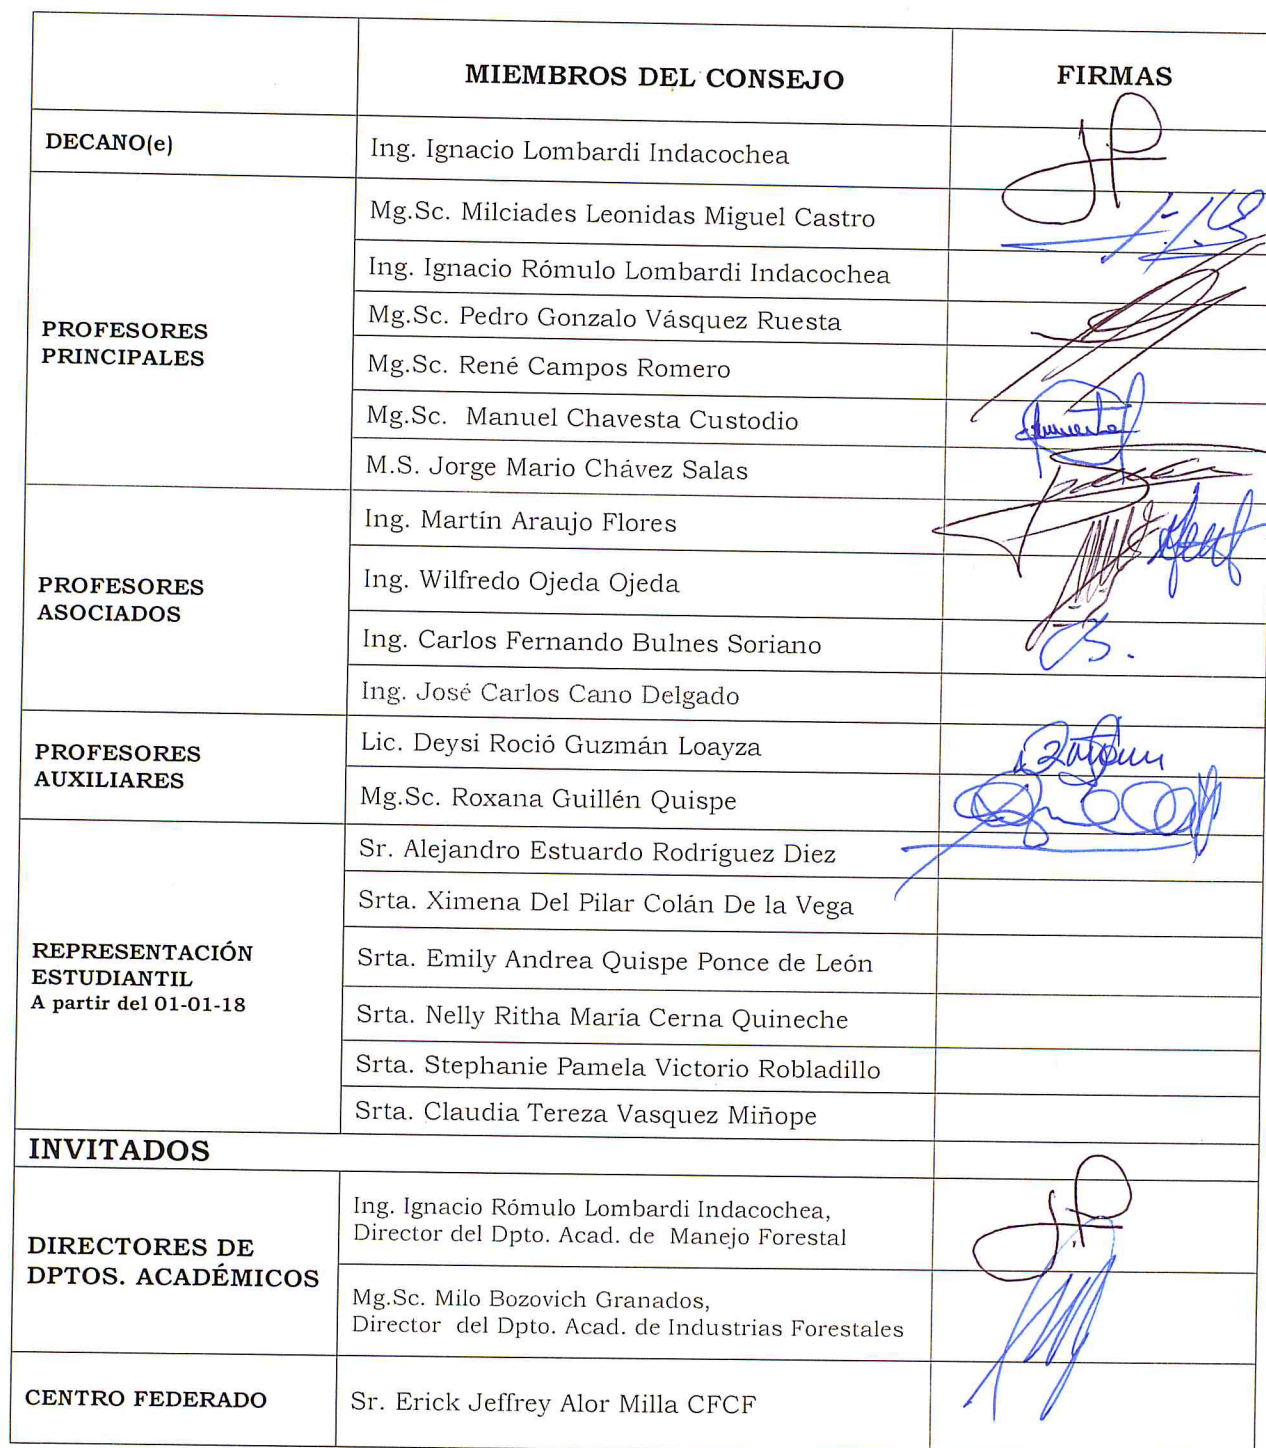 MIEMBROS DEL CONSEJO FIRMAS
DECANO(e) Ing. Ignacio Lombardi Indacochea
PROFESORES
PRINCIPALES
Mg.Sc. Milciades Leonidas Miguel Castro
Ing. Ignacio Rómulo Lombardi Indacochea
Mg.Sc. Pedro Gonzalo Vásquez Ruesta
Mg.Sc. René Campos Romero
Mg.Sc. Manuel Chavesta Custodio
M.S. Jorge Mario Chávez Salas
PROFESORES
ASOCIADOS
Ing. Martín Araujo Flores
Ing. Wilfredo Ojeda Ojeda
Ing. Carlos Fernando Bulnes Soriano
Ing. José Carlos Cano Delgado
PROFESORES
AUXILIARES
Lic. Deysi Roció Guzmán Loayza
Mg.Sc. Roxana Guillén Quispe
REPRESENTACIÓN
ESTUDIANTIL
A partir del 01-01-18
Sr. Alejandro Estuardo Rodríguez Diez
Srta. Ximena Del Pilar Colán De la Vega
Srta. Emily Andrea Quispe Ponce de León
Srta. Nelly Ritha María Cerna Quineche
Srta. Stephanie Pamela Victorio Robladillo
Srta. Claudia Tereza Vasquez Miñope
INVITADOS
DIRECTORES DE
DPTOS. ACADÉMICOS
Ing. Ignacio Rómulo Lombardi Indacochea,
Director del Dpto. Acad. de Manejo Forestal
Mg.Sc. Milo Bozovich Granados,
Director del Dpto. Acad. de Industrias Forestales
CENTRO FEDERADO Sr. Erick Jeffrey Alor Milla CFCF